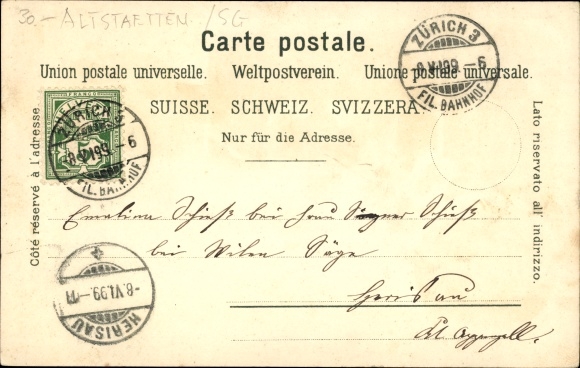 30.- ALTSTAETTEN. / SG
Carte postale.
Union postale universelle. Weltpostverein. Unione postale universale.
SUISSE. SCHWEIZ. SVIZZERA.
Nur für die Adresse.
Côté réservé à l'adresse.
Lato riservato all' indirizzo.
ZÜRICH 3
8.VI.99.-6
FIL. BAHNHOF
FRANCO
ZÜRICH 3
8.VI.99.-6
FIL. BAHNHOF
Schieß bei Frau Schieß
bei Wilen Säge
Herisau
Ct. Appenzell.
-8.VI.99.-11
HERISAU